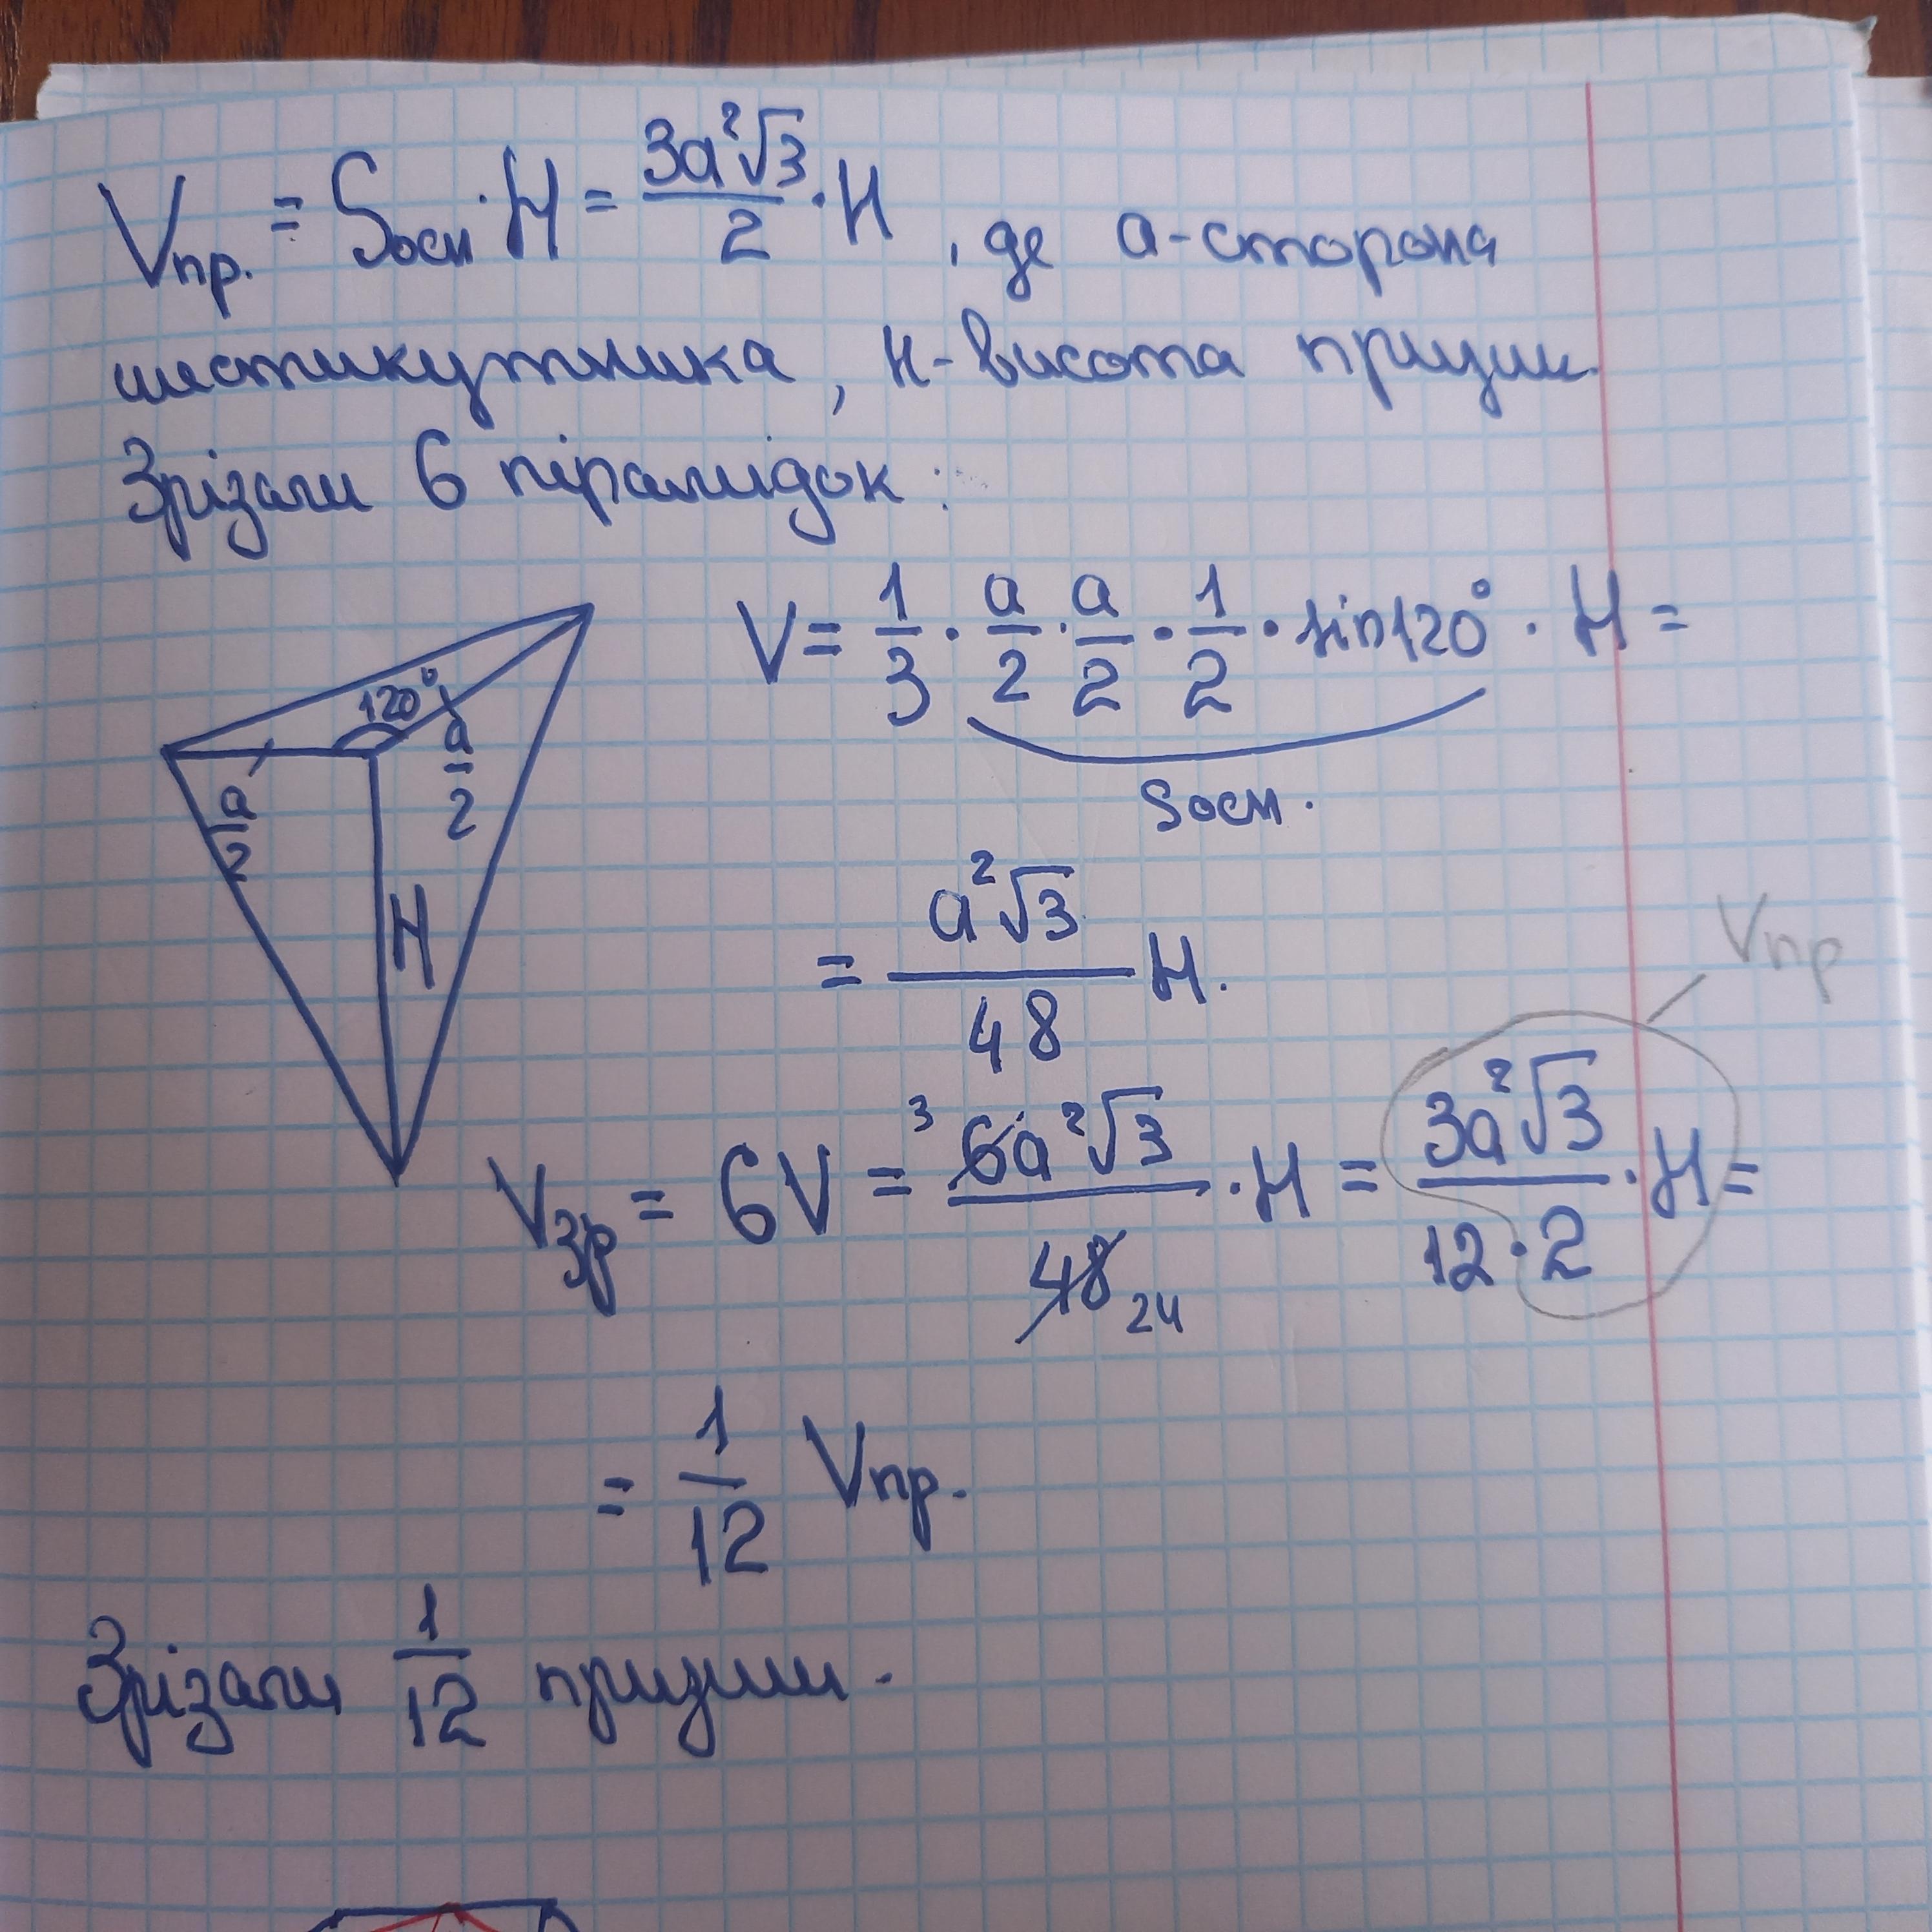 Vпр. = Sосн · H = 3a²√3/2 · H, де a - сторона
шестикутника, H - висота призми.
Зрізали 6 пірамідок:
V = 1/3 · a/2 · a/2 · 1/2 · sin120° · H =
Sосн.
120°
a/2
a/2
H
= a²√3/48 H.
Vпр
Vзр = 6V = ³6a²√3/48 24 · H = 3a²√3/12·2 · H =
= 1/12 Vпр.
Зрізали 1/12 призми.